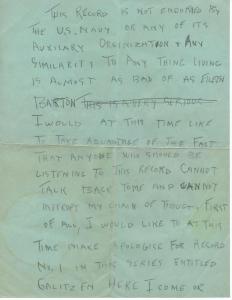 THIS RECORD IS NOT ENDORSED BY
THE U.S. NAVY OR ANY OF ITS
AUXILARY ORGINIZATION & ANY
SIMILARITY TO ANY THING LIVING
IS ALMOST AS BAD OF AS EILEEN
BARTON THIS IS A VERY SERIOUS
I WOULD AT THIS TIME LIKE
TO TAKE ADVANTAGE OF THE FACT
THAT ANYONE WHO SHOULD BE
LISTENING TO THIS RECORD CANNOT
TALK BACK TO ME AND CANNOT
INTERUPT MY CHAIN OF THOUGT, FIRST
OF ALL, I WOULD LIKE TO AT THIS
TIME MAKE APOLOGISE FOR RECORD
NO. 1 IN THIS SERIES ENTITLED
GALITZEN HERE I COME OR